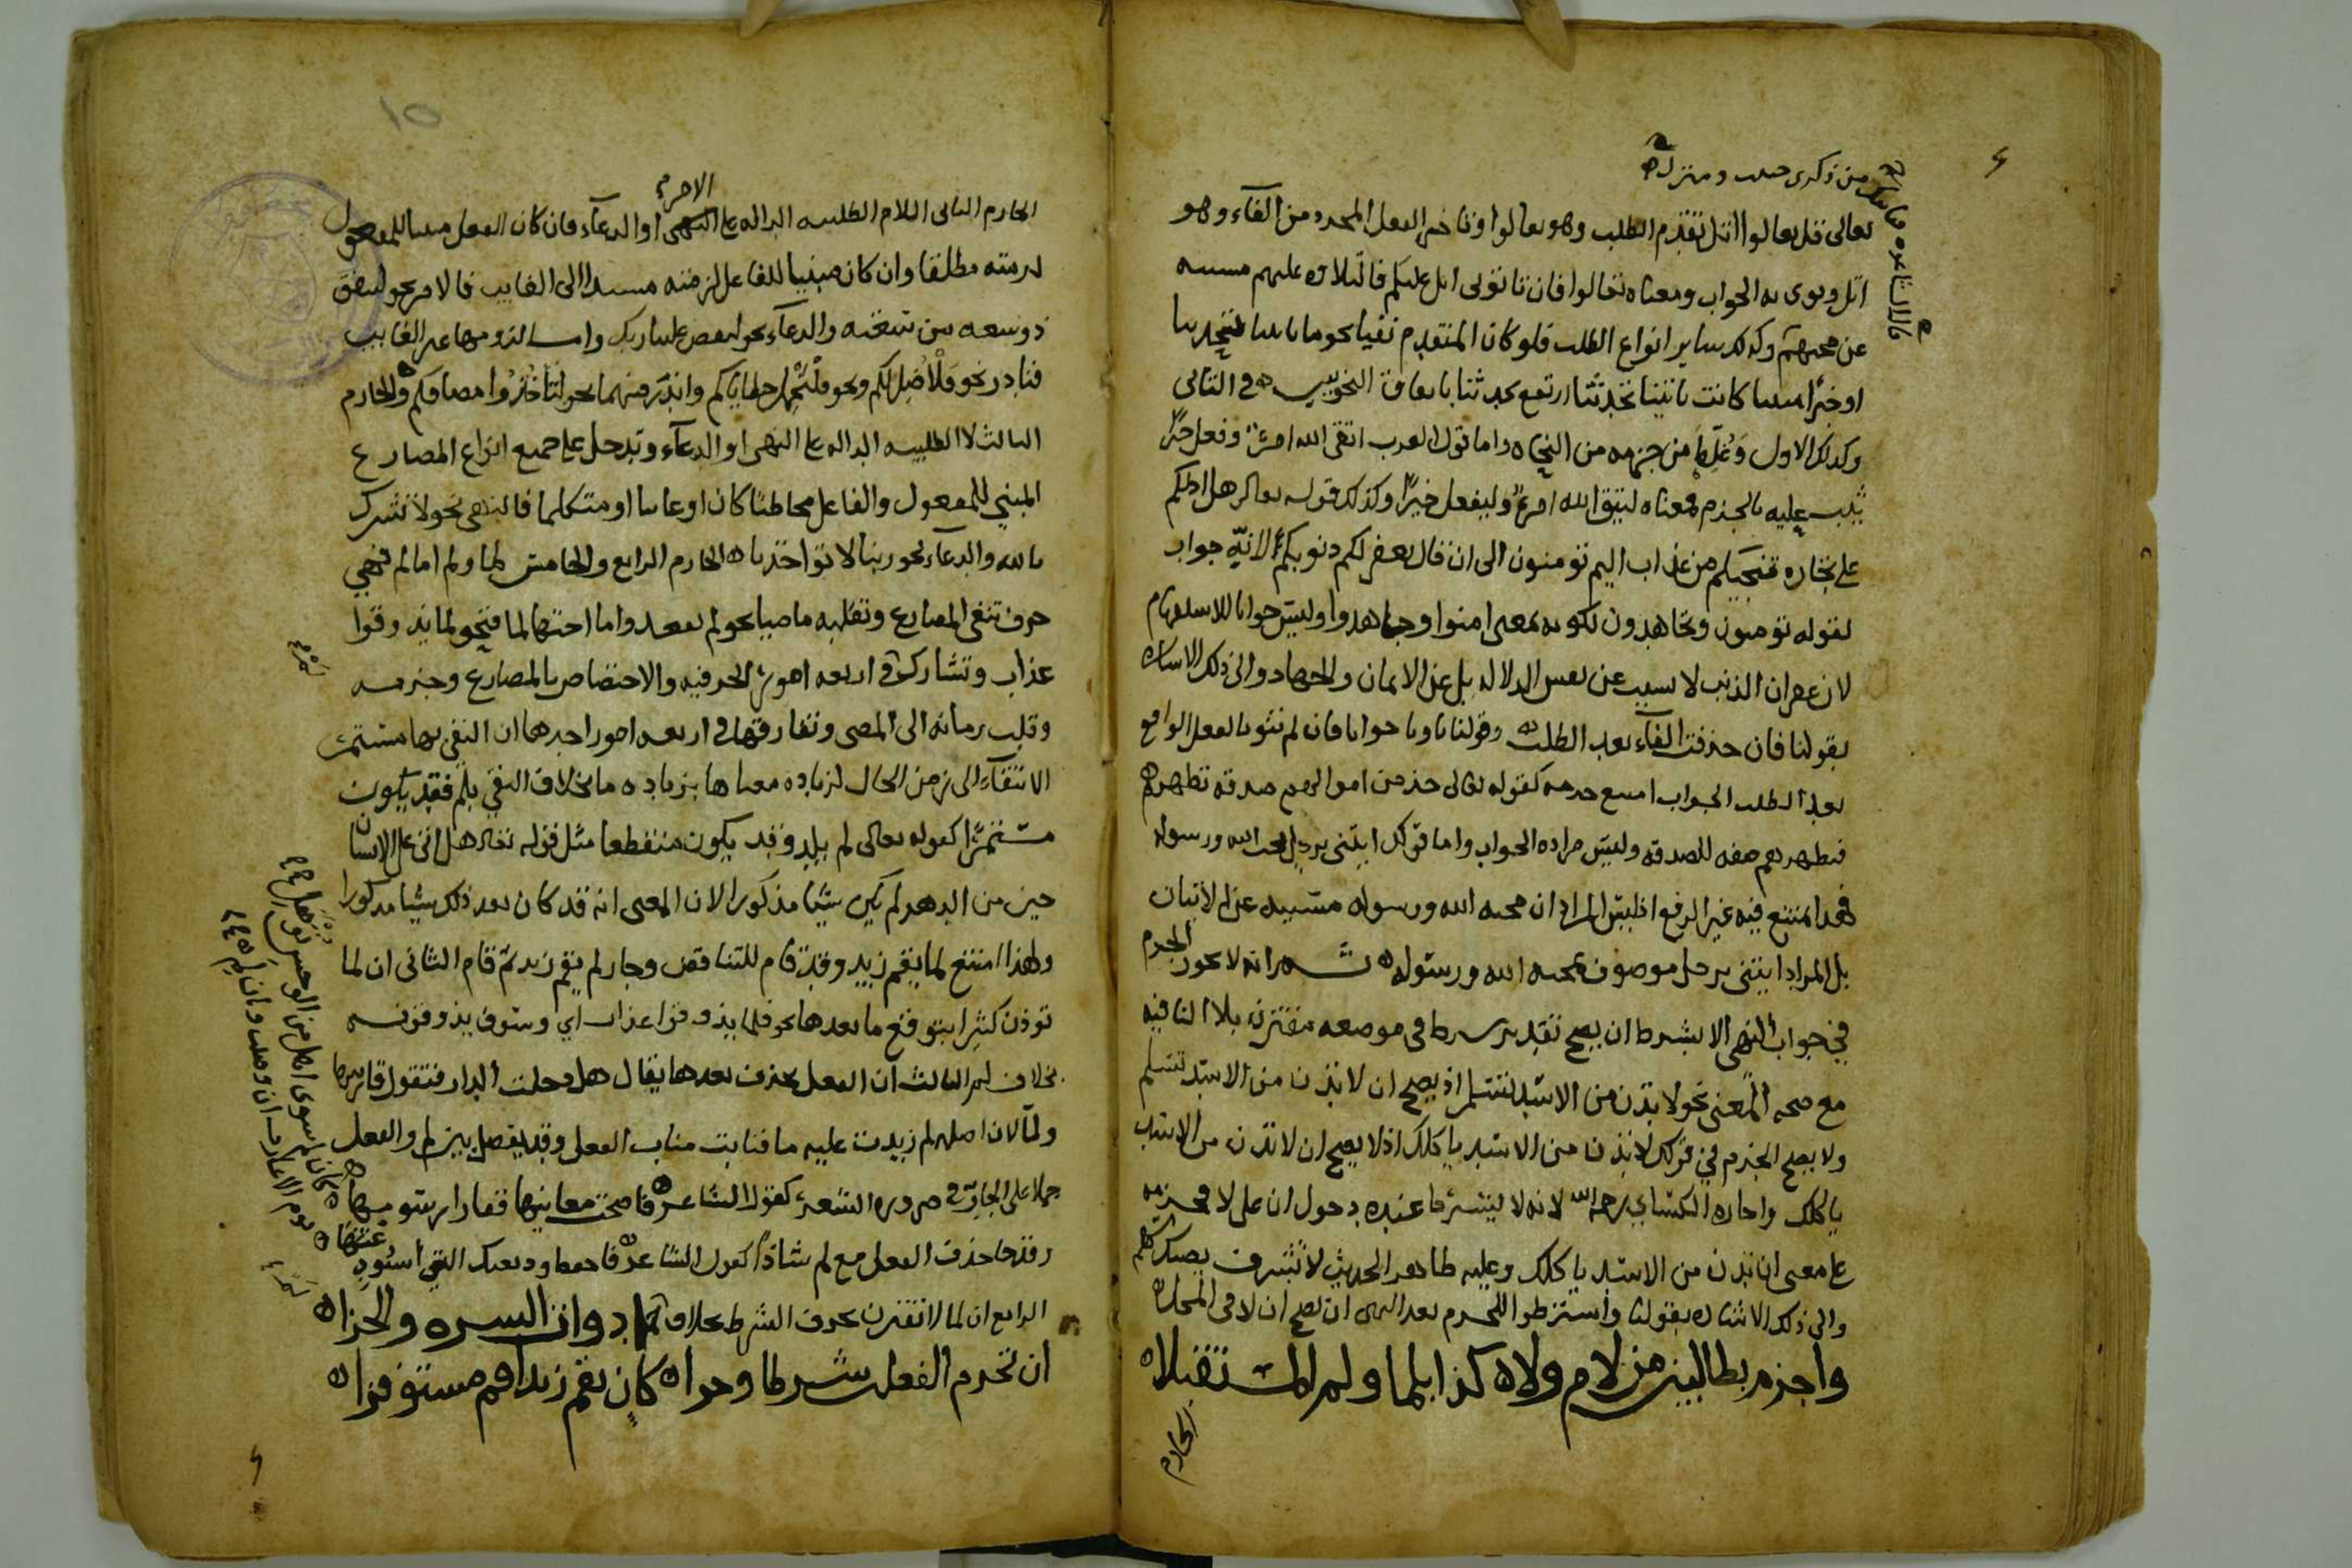 من ذكرى حبيب ومنزل
قال الشاعر قفا نبك
تعالى قل تعالوا اتل تقدم الطلب وهو تعالوا وتاخر الفعل المجرد من الفاء وهو
اتل ونوى به الجواب ومعناه تعالوا فان تاتونى اتل عليكم فالتلاوة عليهم مسببه
عن مجيهم وكذلك ساير انواع الطلب فلو كان المتقدم نفيا نحو ما تاتينا فتحدثنا
او خبرا مثبتا كانت تاتينا تحدثنا ارتفع تحدثنا باتفاق النحويين في الثاني
وكذلك الاول وغلط من جزمه من النحاه واما قول العرب اتقى الله امرؤ وفعل خيرا
يثب عليه بالجزم فمعناه ليتق الله امرؤ وليفعل خيرا وكذلك قوله تعالى هل ادلكم
على تجاره تنجيكم من عذاب اليم تومنون الى ان قال يغفر لكم ذنوبكم الايه جواب
لقوله تومنون وتجاهدون لكونه بمعنى امنوا وجاهدوا وليس جوابا للاستفهام
لان غفران الذنب لا يسبب عن نفس الدلاله بل عن الايمان والجهاد والى ذلك الاشاره
بقولنا فان حذفت الفاء بعد الطلب وقولنا ناويا جوابا فان لم تنو بالفعل الواقع
بعد الطلب الجواب امتنع جزمه كقوله تعالى خذ من اموالهم صدقه تطهرهم
فتطهرهم صفه للصدقه وليس مراده الجواب واما قولك ايتنى برجل يحب الله ورسوله
فهذا يمتنع فيه غير الرفع اذ ليس المراد ان محبه الله ورسوله مسببه عن الاتيان
بل المراد ايتنى برجل موصوف بمحبه الله ورسوله ثم انه لا يجوز الجزم
في جواب النهى الا بشرط ان يصح تقدير شرط في موضعه مقترن بلا النافيه
مع صحه المعنى نحو لا تدن من الاسد تسلم اذ يصح ان لا تدن من الاسد تسلم
ولا يصح الجزم في قولك لا تدن من الاسد ياكلك اذ لا يصح ان لا تدن من الاسد
ياكلك واجازه الكسائي رحمه الله لانه لا يشترط عنده دخول ان على لا فجزمه
على معنى ان تدن من الاسد ياكلك وعليه ظاهر الحديث لا تشرف يصبك سهم
والى ذلك الاشاره بقولنا واشترطوا للجزم بعد النهى ان تصح ان لا في المحل
واجزم بطالبين من لام ولا كذا بلما ولم المستقبلا
الجازم
١٥
الجازم الثانى اللام الطلبيه الداله على الامر او الدعاء فان كان الفعل مبنيا للمفعول
لزمته مطلقا وان كان مبنيا للفاعل لزمته مسندا الى الغايب فالامر نحو لينفق
ذو سعه من سعته والدعاء نحو ليقض علينا ربك واما لزومها غير الغايب
فنادر نحو فلأصل لكم ونحو ولنحمل خطاياكم واندر منهما نحو لتاخذوا مصافكم والجازم
الثالث لا الطلبيه الداله على النهى او الدعاء وتدخل على جميع انواع المضارع
المبني للمفعول والفاعل مخاطبا كان او غايبا او متكلما فالنهى نحو لا تشرك
بالله والدعاء نحو ربنا لا تواخذنا الجازم الرابع والخامس لما ولم اما لم فهي
حرف تنفى المضارع وتقلبه ماضيا نحو لم يقعد واما اختها لما فنحو لما يذوقوا
عذاب وتشاركها في اربعه امور الحرفيه والاختصاص بالمضارع وجزمه
وقلب زمانه الى المضى وتفارقها في اربعه امور احدها ان النفى بها مستمر
الانتفاء الى زمن الحال لزياده معناها بزياده ما بخلاف النفي بلم فقد يكون
مستمرا كقوله تعالى لم يلد وقد يكون منقطعا مثل قوله تعالى هل اتى على الانسان
حين من الدهر لم يكن شيا مذكورا لان المعنى انه قد كان بعد ذلك شيا مذكورا
ولهذا امتنع لما يقم زيد وقد قام للتناقض وجاز لم يقم زيد ثم قام الثانى ان لما
توذن كثيرا بتوقع ما بعدها نحو فلما يذوقوا عذاب اي وسوف يذوقونه
بخلاف لم الثالث ان الفعل يحذف بعدها يقال هل دخلت الدار فتقول قاربتها
ولما لان اصلها لم زيدت عليه ما فنابت مناب الفعل وقد يفصل بين لم والفعل
حملا على الجار في ضروره الشعر كقول الشاعر فاضحت مغانيها قفارا رسومها
كان لم سوى اهل من الوحش توهل
وقد جا حذف الفعل مع لم شاذا كقول الشاعر احفظ وديعتك التي استودعتها
يوم الاعازب ان وصلت وان لم
الرابع ان لما لا تقترن بحرف الشرط بخلاف لم
ادوات الشرط والجزا
ان تجزم الفعل شرطا وجزا كان يقم زيد اقم مستوفزا